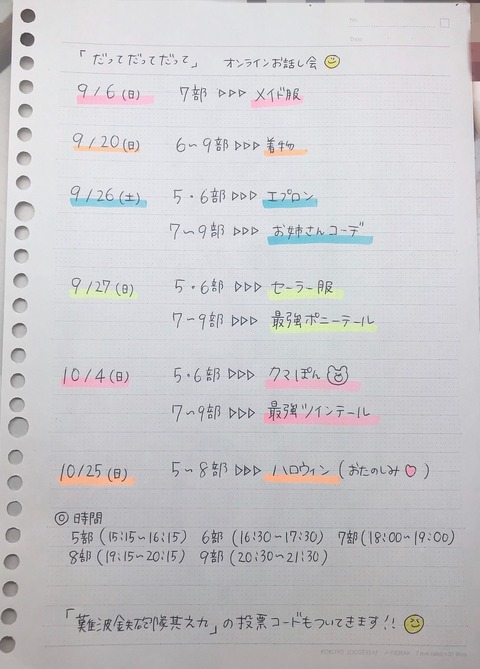 「だってだってだって」 オンラインお話し会
9/6(日) 7部 ▷▷▷ メイド服
9/20(日) 6〜9部 ▷▷▷ 着物
9/26(土) 5・6部 ▷▷▷ エプロン
7〜9部 ▷▷▷ お姉さんコーデ
9/27(日) 5・6部 ▷▷▷ セーラー服
7〜9部 ▷▷▷ 最強ポニーテール
10/4(日) 5・6部 ▷▷▷ クマぽん
7〜9部 ▷▷▷ 最強ツインテール
10/25(日) 5〜8部 ▷▷▷ ハロウィン(おたのしみ♡)
◎時間
5部(15:15〜16:15) 6部(16:30〜17:30) 7部(18:00〜19:00)
8部(19:15〜20:15) 9部(20:30〜21:30)
「難波鉄砲隊其之九」の投票コードもついてきます!!